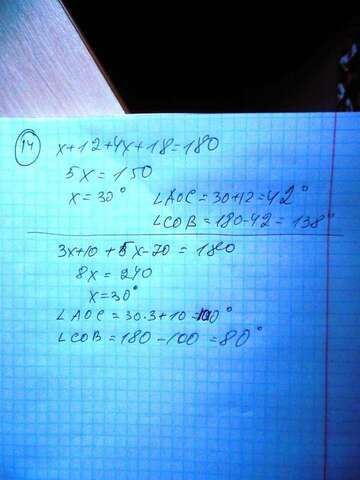 14
x+12+4x+18=180
5x=150
x=30°
∠AOC=30+12=42°
∠COB=180-42=138°
3x+10+5x-70=180
8x=240
x=30°
∠AOC=30·3+10=100°
∠COB=180-100=80°